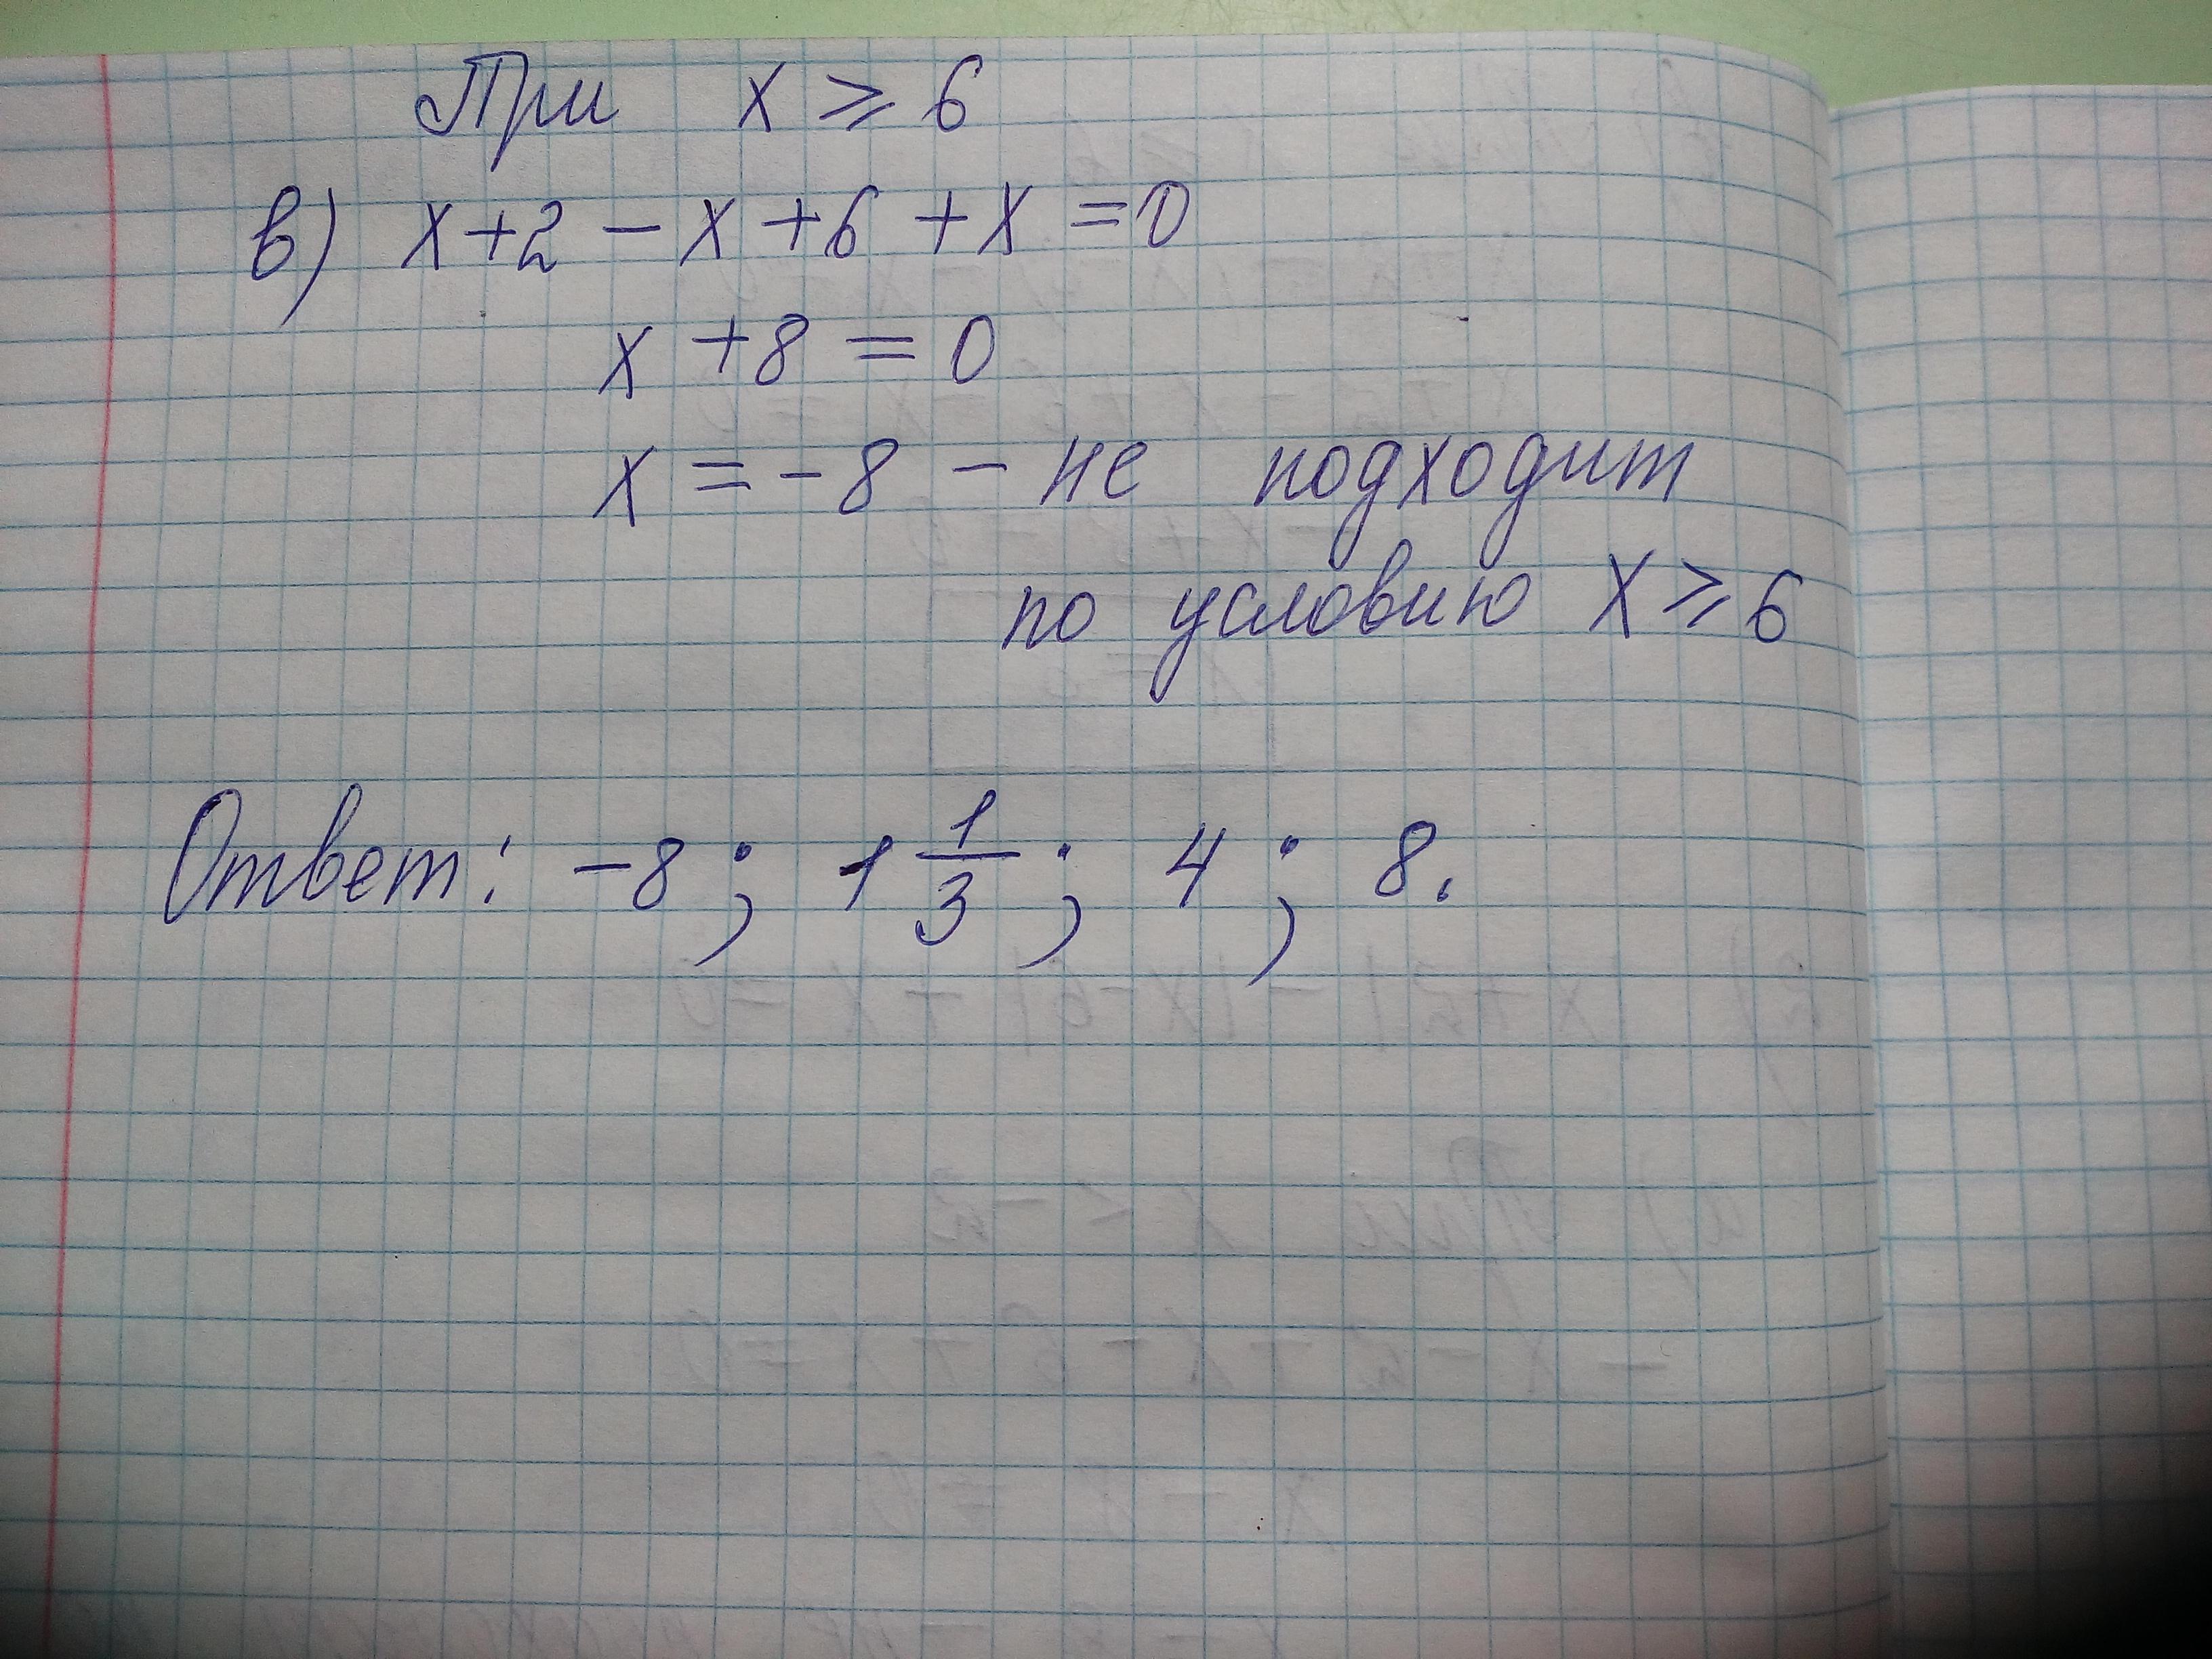 При x ⩾ 6
в) x+2 - x +6 + x = 0
x + 8 = 0
x = -8 - не подходит
по условию x ⩾ 6
Ответ: -8; 1 1/3; 4; 8.